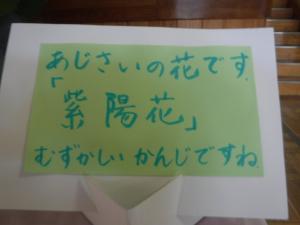 あじさいの花です.
「紫陽花」
むずかしいかんじですね.